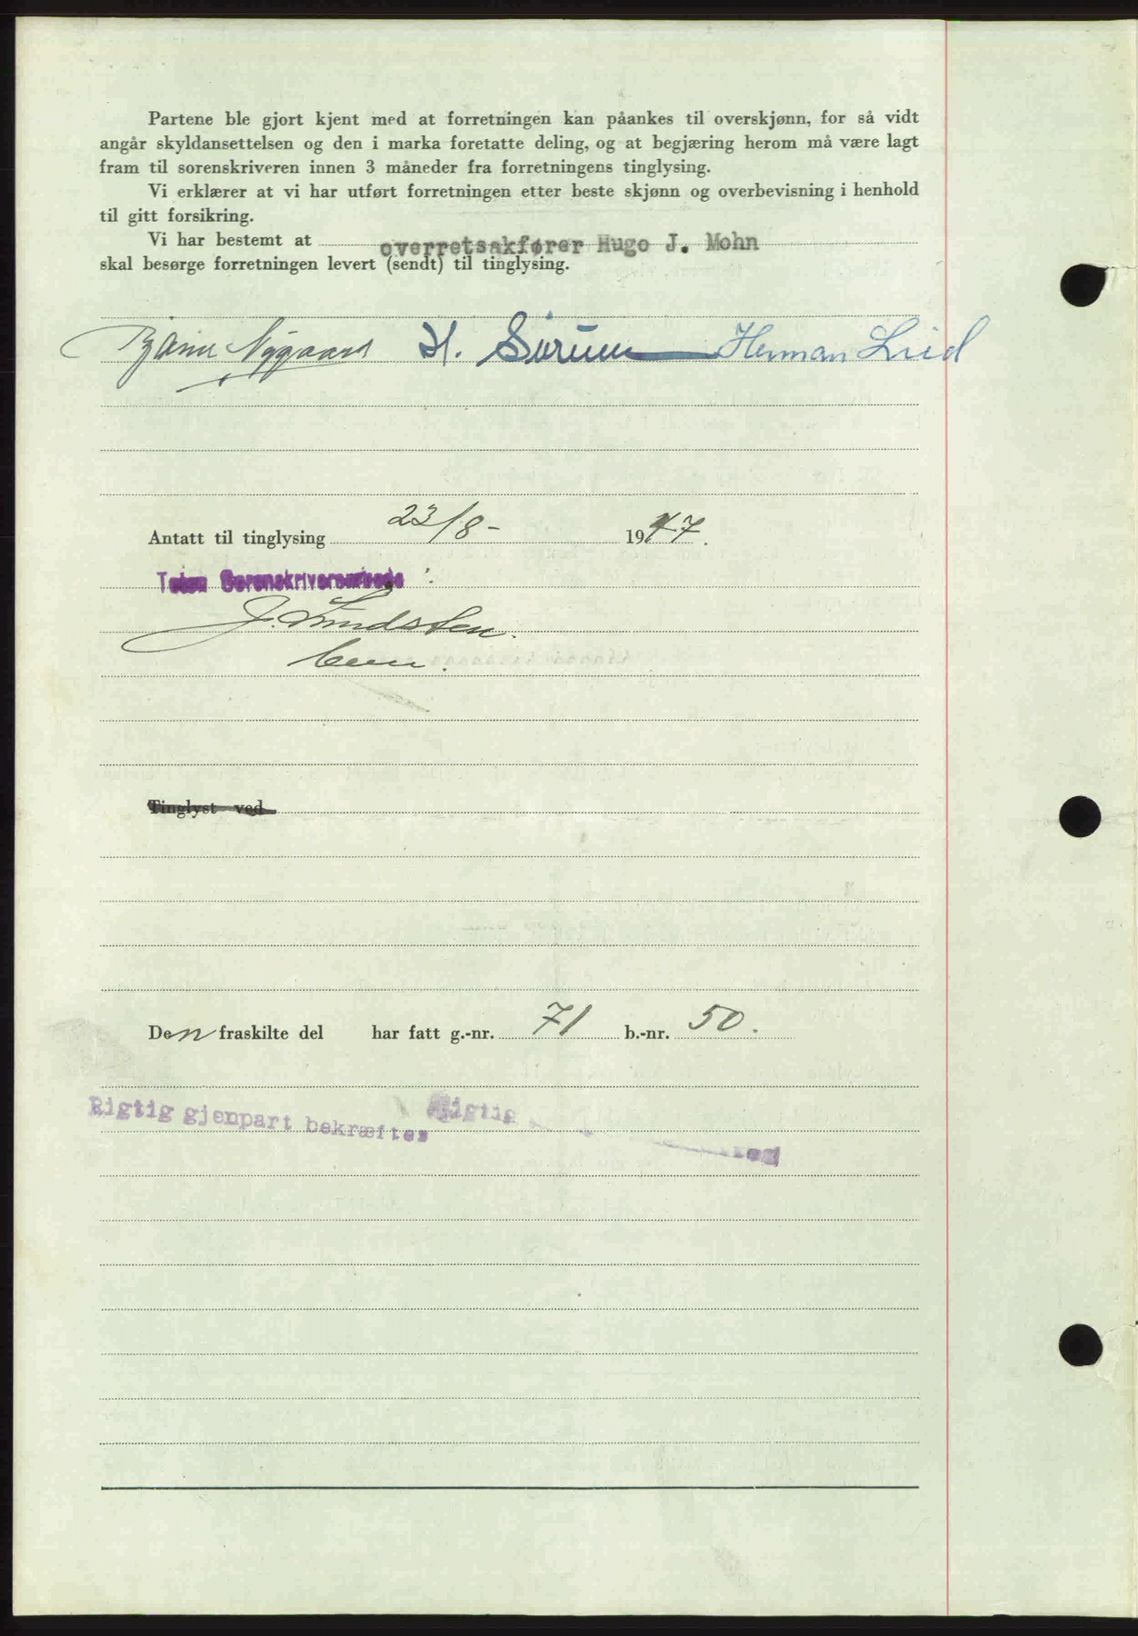 Partene ble gjort kjent med at forretningen kan påankes til overskjønn, for så vidt
angår skyldansettelsen og den i marka foretatte deling, og at begjæring herom må være lagt
fram til sorenskriveren innen 3 måneder fra forretningens tinglysing.
Vi erklærer at vi har utført forretningen etter beste skjønn og overbevisning i henhold
til gitt forsikring.
Vi har bestemt at overretsakfører Hugo J. Mohn
skal besørge forretningen levert (sendt) til tinglysing.
Nygaard H. Sørum Herman Lied
Antatt til tinglysing 23/8- 1947.
Toten Sorenskriverembede
J. Lundsten.
Tinglyst ved
Den fraskilte del har fatt g.-nr. 71 b.-nr. 50.
Rigtig gjenpart bekræftes Rigtig